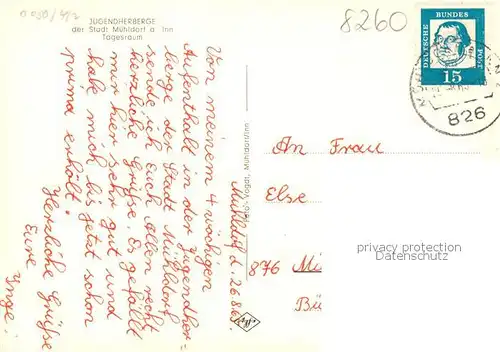 8260
JUGENDHERBERGE
der Stadt Mühldorf a. Inn
Tagesraum
DEUTSCHE BUNDES POST
15
826
Mühldorf, d. 26.8.6
Von meinem 4 wöchigen
Aufenthalt in der Jugendher-
berge der Stadt Mühldorf
sende ich Euch Allen recht
herzliche Grüße. Es gefällt
mir hier sehr gut und
habe mich bis jetzt schon
prima erholt.
Herzliche Grüße
Eure
Inge.
Foto-Vogdt, Mühldorf/Inn
An Frau
Else
876 Mi
Bü
privacy protection
watermark